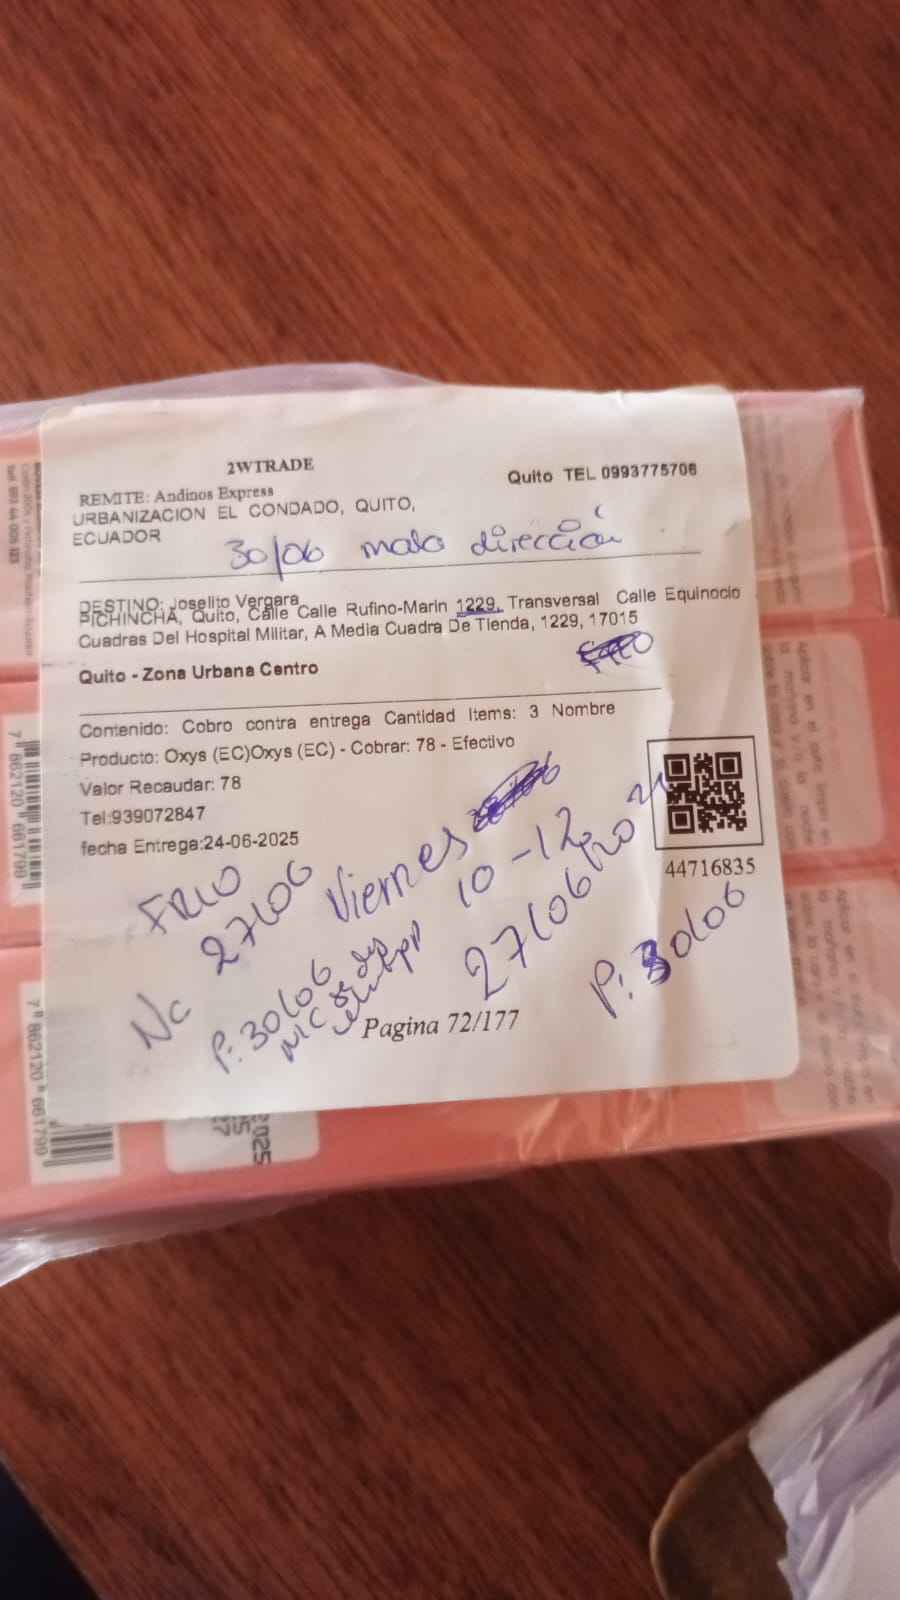 2WTRADE
Quito TEL 0993775706
REMITE: Andinos Express
URBANIZACION EL CONDADO, QUITO,
ECUADOR
30/06 mala dirección
DESTINO: Joselito Vergara
PICHINCHA, Quito, Calle Calle Rufino-Marin 1229, Transversal Calle Equinocio
Cuadras Del Hospital Militar, A Media Cuadra De Tienda, 1229, 17015
Quito - Zona Urbana Centro
Contenido: Cobro contra entrega Cantidad Items: 3 Nombre
Producto: Oxys (EC)Oxys (EC) - Cobrar: 78 - Efectivo
Valor Recaudar: 78
Tel:939072847
fecha Entrega:24-06-2025
44716835
FRIO
27/06
Viernes
10-12
Nc
P: 30/06
27/06
P: 30/06
Pagina 72/177
7 862120 661799
7 862120 661799
2025